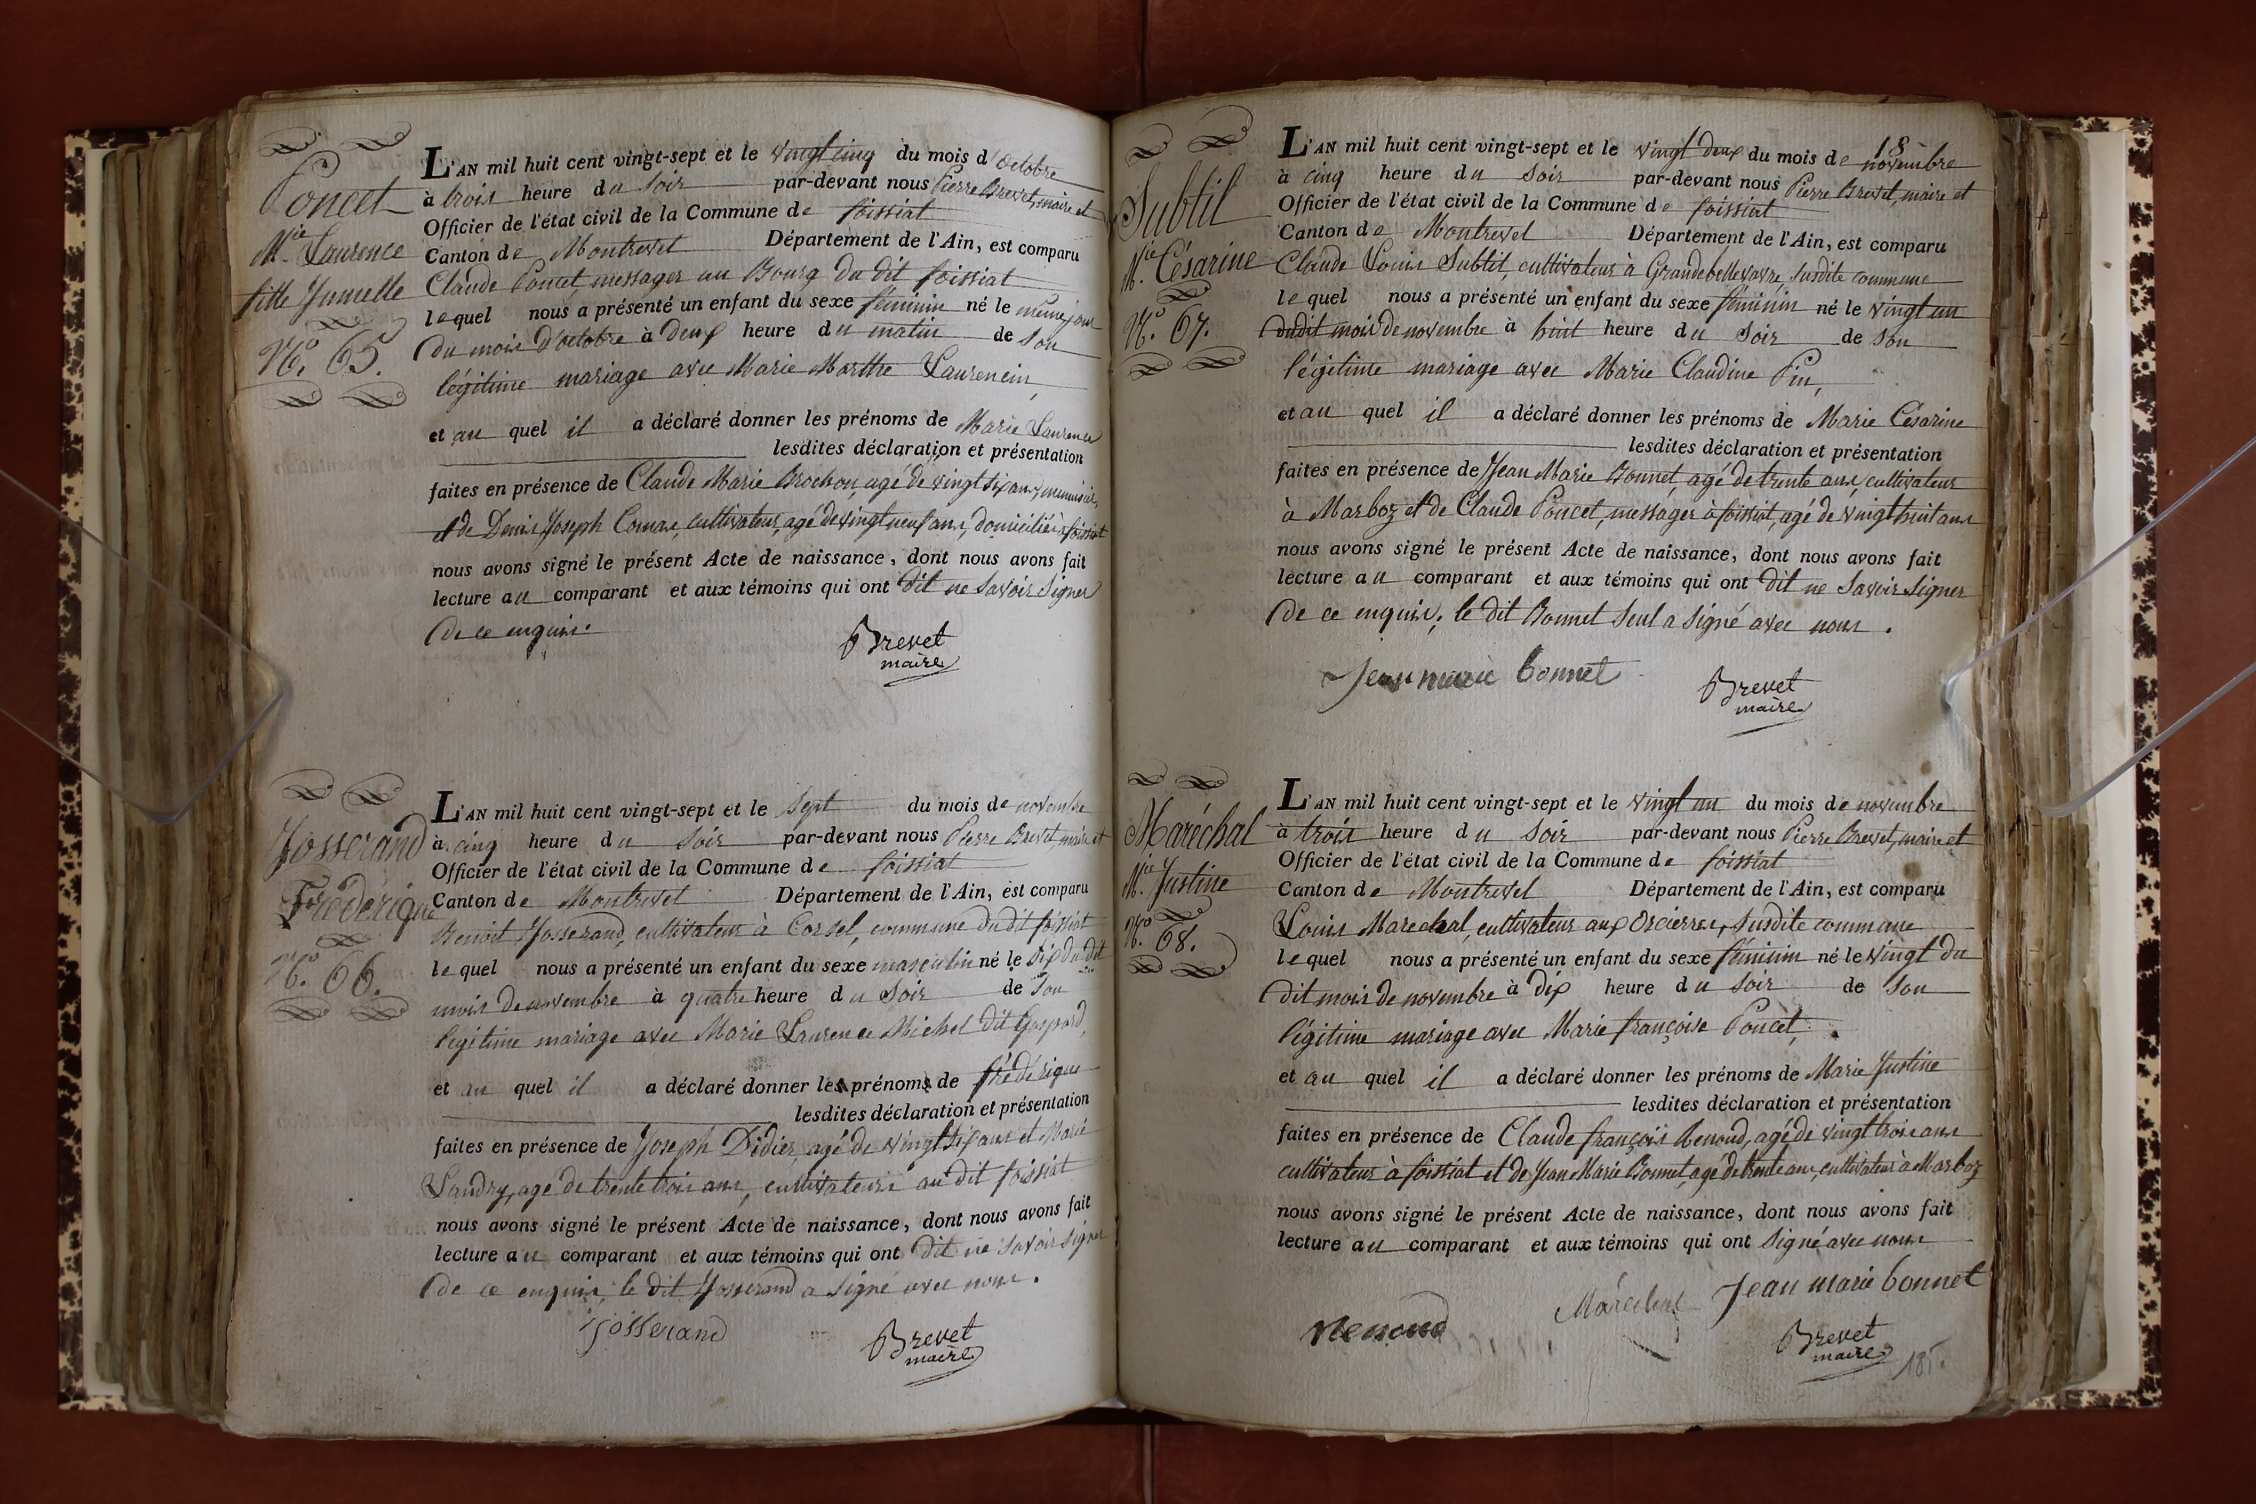 Poncet
Mie Laurence
fille Jumelle
No. 65.
L'AN mil huit cent vingt-sept et le vingt cinq du mois d'octobre
à trois heure du soir par-devant nous Pierre Brevet, maire et
Officier de l'état civil de la Commune de foissiat
Canton de Montrevel Département de l'Ain, est comparu
Claude Poncet, messager au Bourg du dit foissiat
lequel nous a présenté un enfant du sexe féminin né le même jour
du mois d'octobre à deux heure du matin de son
légitime mariage avec Marie Marthe Laurencin,
et au quel il a déclaré donner les prénoms de Marie Laurence
lesdites déclaration et présentation
faites en présence de Claude Marie Brochon, agé de vingt six ans,
et de Denis Joseph Comas, cultivateur, agé de vingt neuf ans, domiciliés à foissiat
nous avons signé le présent Acte de naissance, dont nous avons fait
lecture au comparant et aux témoins qui ont dit ne savoir signer
de ce enquis.
Brevet
maire
Josserand
Frédérique
No. 66.
L'AN mil huit cent vingt-sept et le sept du mois de novembre
à cinq heure du soir par-devant nous Pierre Brevet, maire et
Officier de l'état civil de la Commune de foissiat
Canton de Montrevel Département de l'Ain, est comparu
Benoit Josserand, cultivateur à Corsel, commune du dit foissiat
lequel nous a présenté un enfant du sexe masculin né le six du dit
mois de novembre à quatre heure du soir de son
légitime mariage avec Marie Laurence Michel dit Gaspard,
et au quel il a déclaré donner les prénoms de frédérique
lesdites déclaration et présentation
faites en présence de Joseph Didier, agé de vingt six ans et Marie
Landry, agé de trente trois ans, cultivateurs au dit foissiat
nous avons signé le présent Acte de naissance, dont nous avons fait
lecture au comparant et aux témoins qui ont dit ne savoir signer
de ce enquis, le dit Josserand a signé avec nous.
Josserand
Brevet
maire
18
Subtil
Mie Césarine
No. 67.
L'AN mil huit cent vingt-sept et le vingt deux du mois de novembre
à cinq heure du soir par-devant nous Pierre Brevet, maire et
Officier de l'état civil de la Commune de foissiat
Canton de Montrevel Département de l'Ain, est comparu
Claude Louis Subtil, cultivateur à Grandebellevavre, susdite commune
lequel nous a présenté un enfant du sexe féminin né le vingt un
dudit mois de novembre à huit heure du soir de son
légitime mariage avec Marie Claudine Pin,
et au quel il a déclaré donner les prénoms de Marie Césarine
lesdites déclaration et présentation
faites en présence de Jean Marie Bonnet, agé de trente ans, cultivateur
à Marboz et de Claude Poncet, messager à foissiat, agé de vingt huit ans
nous avons signé le présent Acte de naissance, dont nous avons fait
lecture au comparant et aux témoins qui ont dit ne savoir signer
de ce enquis, le dit Bonnet seul a signé avec nous.
Jean marie bonnet
Brevet
maire
Maréchal
Mie Justine
No. 68.
L'AN mil huit cent vingt-sept et le vingt un du mois de novembre
à trois heure du soir par-devant nous Pierre Brevet, maire et
Officier de l'état civil de la Commune de foissiat
Canton de Montrevel Département de l'Ain, est comparu
Louis Marechal, cultivateur aux Orcierres, susdite commune
lequel nous a présenté un enfant du sexe féminin né le vingt du
dit mois de novembre à dix heure du soir de son
légitime mariage avec Marie françoise Poncet,
et au quel il a déclaré donner les prénoms de Marie Justine
lesdites déclaration et présentation
faites en présence de Claude françois Renoud, agé de vingt trois ans
cultivateur à foissiat et de Jean Marie Bonnet, agé de trente ans, cultivateur à Marboz
nous avons signé le présent Acte de naissance, dont nous avons fait
lecture au comparant et aux témoins qui ont signé avec nous
Maréchal Jean marie bonnet
Renoud
Brevet
maire
185.